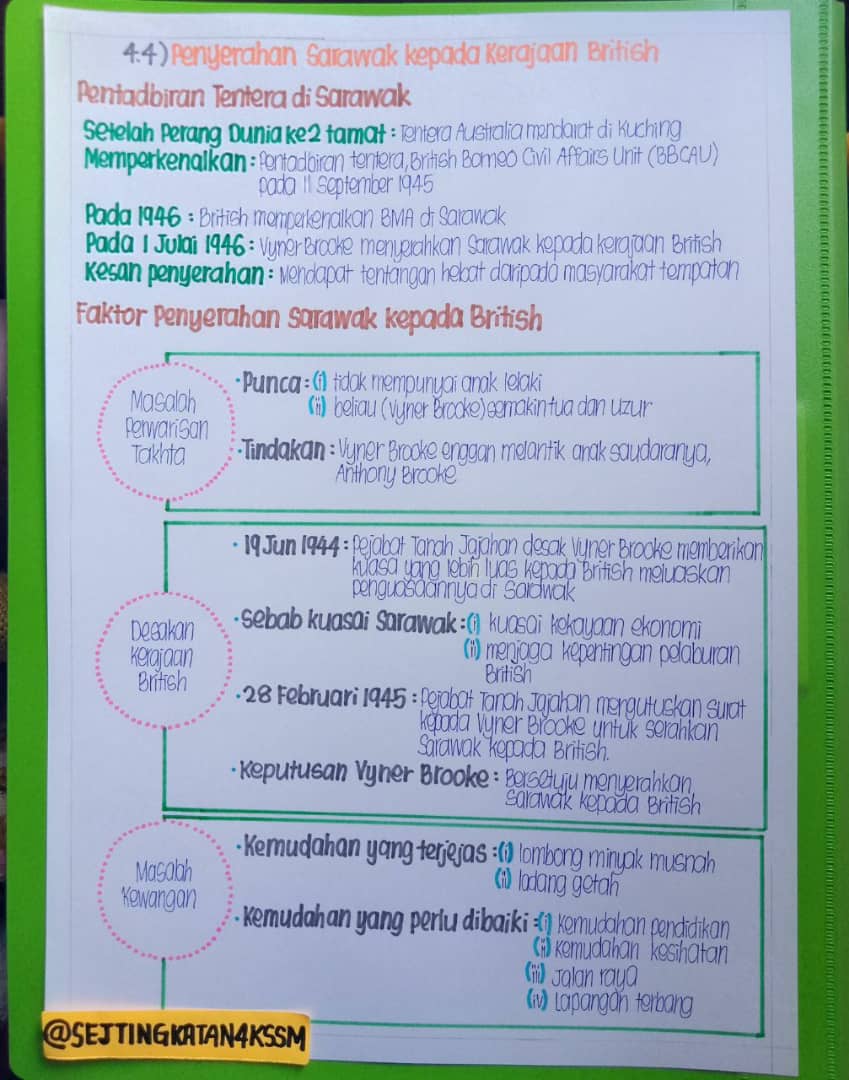 4.4) Penyerahan Sarawak kepada Kerajaan British
Pentadbiran Tentera di Sarawak
Setelah Perang Dunia ke 2 tamat : Tentera Australia mendarat di Kuching
Memperkenalkan : Pentadbiran tentera, British Borneo Civil Affairs Unit (BBCAU)
pada 11 September 1945
Pada 1946 : British memperkenalkan BMA di Sarawak
Pada 1 Julai 1946 : Vyner Brooke menyerahkan Sarawak kepada kerajaan British
Kesan penyerahan : Mendapat tentangan hebat daripada masyarakat tempatan
Faktor Penyerahan Sarawak kepada British
Masalah
Perwarisan
Takhta
• Punca : (i) tidak mempunyai anak lelaki
(ii) beliau (Vyner Brooke) semakin tua dan uzur
• Tindakan : Vyner Brooke enggan melantik anak saudaranya,
Anthony Brooke
Desakan
Kerajaan
British
• 19 Jun 1944 : Pejabat Tanah Jajahan desak Vyner Brooke memberikan
kuasa yang lebih luas kepada British meluaskan
penguasaannya di Sarawak
• Sebab kuasai Sarawak : (i) kuasai kekayaan ekonomi
(ii) menjaga kepentingan pelaburan
British
• 28 Februari 1945 : Pejabat Tanah Jajahan mengutuskan surat
kepada Vyner Brooke untuk serahkan
Sarawak kepada British.
• Keputusan Vyner Brooke : Bersetuju menyerahkan
Sarawak kepada British
Masalah
Kewangan
• Kemudahan yang terjejas : (i) lombong minyak musnah
(ii) ladang getah
• Kemudahan yang perlu dibaiki : (i) Kemudahan pendidikan
(ii) Kemudahan kesihatan
(iii) Jalan raya
(iv) Lapangan terbang
@SEJTINGKATAN4KSSM